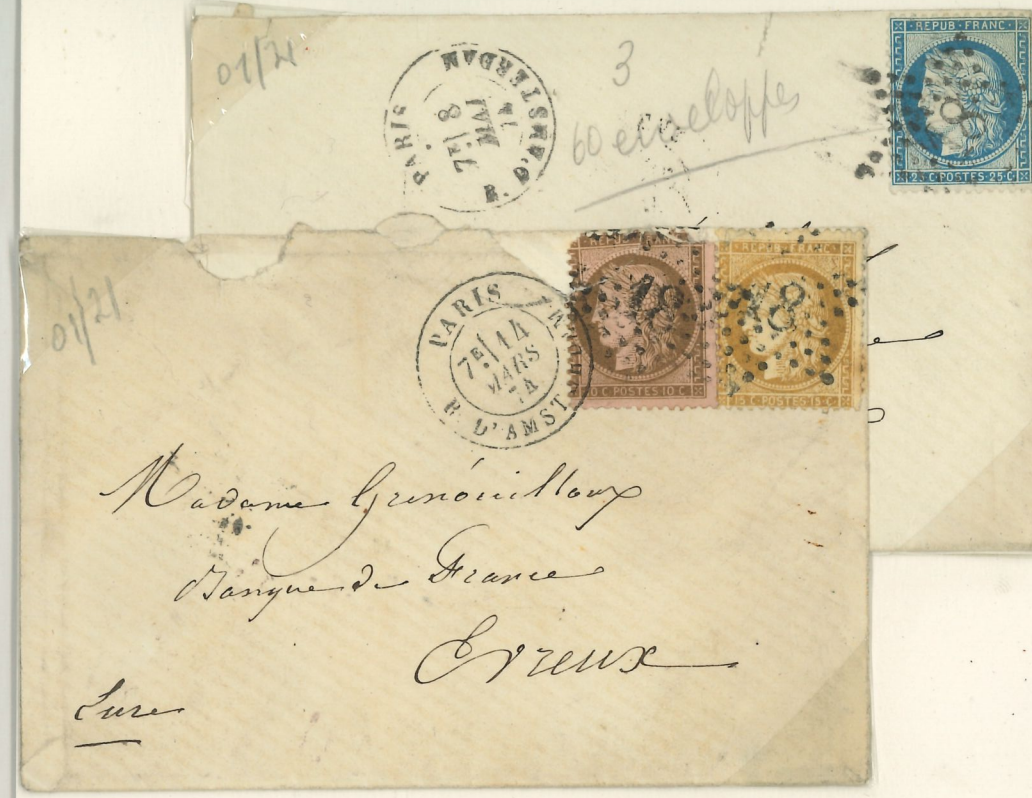 01/21
PARIS
7E 8
MAI
74
R. D'AMSTERDAM
3
60 enveloppes
REPUB·FRANC·
18
25·C·POSTES·25·C·
01/21
PARIS
7E 14
MARS
74
R. D'AMST
18
10 C·POSTES 10 C·
REPUB·FRANC·
18
15 C·POSTES 15 C·
Madame
Banque de France
Evreux
Eure